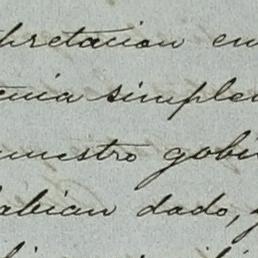 pretacion en
enia simplem
nuestro gobi
abian dado,